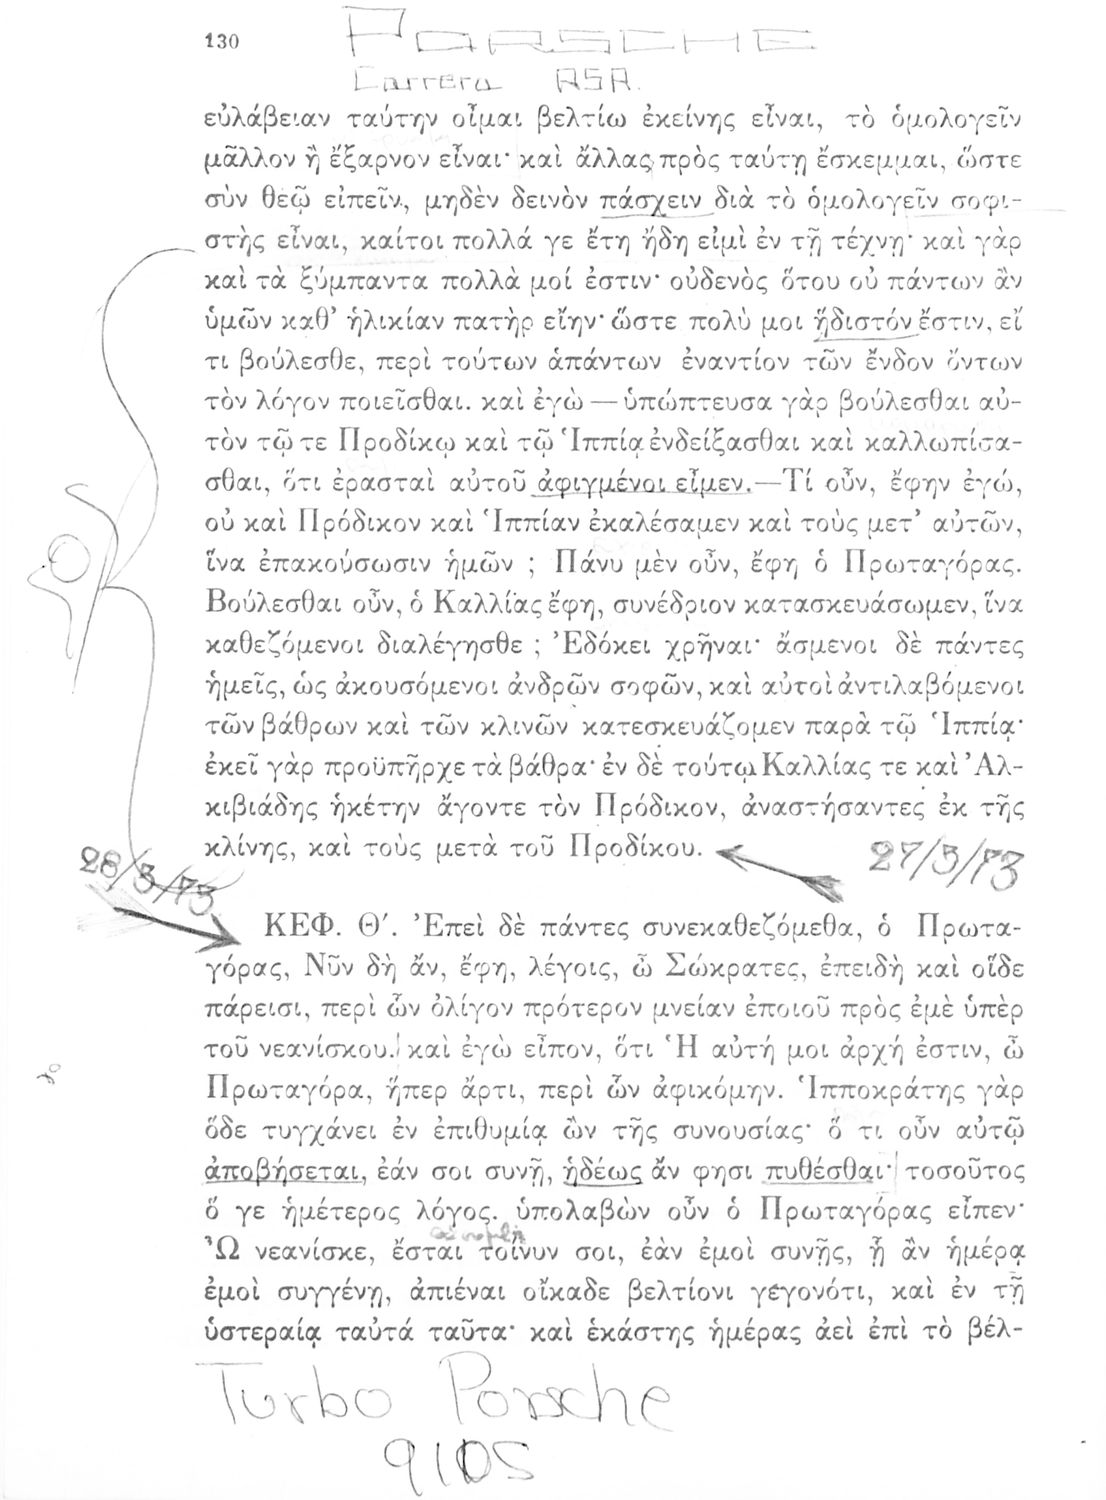 130
PORSCHE
Carrera RSR.
εὐλάβειαν ταύτην οἶμαι βελτίω ἐκείνης εἶναι, τὸ ὁμολογεῖν
μᾶλλον ἢ ἔξαρνον εἶναι· καὶ ἄλλας πρὸς ταύτῃ ἔσκεμμαι, ὥστε
σὺν θεῷ εἰπεῖν, μηδὲν δεινὸν πάσχειν διὰ τὸ ὁμολογεῖν σοφι-
στὴς εἶναι, καίτοι πολλά γε ἔτη ἤδη εἰμὶ ἐν τῇ τέχνῃ· καὶ γὰρ
καὶ τὰ ξύμπαντα πολλὰ μοί ἐστιν· οὐδενὸς ὅτου οὐ πάντων ἂν
ὑμῶν καθ’ ἡλικίαν πατὴρ εἴην· ὥστε πολὺ μοι ἥδιστόν ἔστιν, εἴ
τι βούλεσθε, περὶ τούτων ἁπάντων ἐναντίον τῶν ἔνδον ὄντων
τὸν λόγον ποιεῖσθαι. καὶ ἐγὼ — ὑπώπτευσα γὰρ βούλεσθαι αὐ-
τὸν τῷ τε Προδίκῳ καὶ τῷ Ἱππίᾳ ἐνδείξασθαι καὶ καλλωπίσα-
σθαι, ὅτι ἐρασταὶ αὐτοῦ ἀφιγμένοι εἶμεν.—Τί οὖν, ἔφην ἐγώ,
οὐ καὶ Πρόδικον καὶ Ἱππίαν ἐκαλέσαμεν καὶ τοὺς μετ’ αὐτῶν,
ἵνα ἐπακούσωσιν ἡμῶν ; Πάνυ μὲν οὖν, ἔφη ὁ Πρωταγόρας.
Βούλεσθαι οὖν, ὁ Καλλίας ἔφη, συνέδριον κατασκευάσωμεν, ἵνα
καθεζόμενοι διαλέγησθε ; Ἐδόκει χρῆναι· ἄσμενοι δὲ πάντες
ἡμεῖς, ὡς ἀκουσόμενοι ἀνδρῶν σοφῶν, καὶ αὐτοὶ ἀντιλαβόμενοι
τῶν βάθρων καὶ τῶν κλινῶν κατεσκευάζομεν παρὰ τῷ Ἱππίᾳ·
ἐκεῖ γὰρ προϋπῆρχε τὰ βάθρα· ἐν δὲ τούτῳ Καλλίας τε καὶ Ἀλ-
κιβιάδης ἡκέτην ἄγοντε τὸν Πρόδικον, ἀναστήσαντες ἐκ τῆς
κλίνης, καὶ τοὺς μετὰ τοῦ Προδίκου.
27/3/73
28/3/73
ΚΕΦ. Θ′. Ἐπεὶ δὲ πάντες συνεκαθεζόμεθα, ὁ Πρωτα-
γόρας, Νῦν δὴ ἄν, ἔφη, λέγοις, ὦ Σώκρατες, ἐπειδὴ καὶ οἵδε
πάρεισι, περὶ ὧν ὀλίγον πρότερον μνείαν ἐποιοῦ πρὸς ἐμὲ ὑπὲρ
τοῦ νεανίσκου. καὶ ἐγὼ εἶπον, ὅτι Ἡ αὐτή μοι ἀρχή ἐστιν, ὦ
Πρωταγόρα, ἥπερ ἄρτι, περὶ ὧν ἀφικόμην. Ἱπποκράτης γὰρ
ὅδε τυγχάνει ἐν ἐπιθυμίᾳ ὢν τῆς συνουσίας· ὅ τι οὖν αὐτῷ
ἀποβήσεται, ἐάν σοι συνῇ, ἡδέως ἄν φησι πυθέσθαι· τοσοῦτος
ὅ γε ἡμέτερος λόγος. ὑπολαβὼν οὖν ὁ Πρωταγόρας εἶπεν·
Ὦ νεανίσκε, ἔσται τοίνυν σοι, ἐὰν ἐμοὶ συνῇς, ᾗ ἂν ἡμέρᾳ
ἐμοὶ συγγένῃ, ἀπιέναι οἴκαδε βελτίονι γεγονότι, καὶ ἐν τῇ
ὑστεραίᾳ ταὐτά ταῦτα· καὶ ἑκάστης ἡμέρας ἀεὶ ἐπὶ τὸ βέλ-
Turbo Porsche
910S